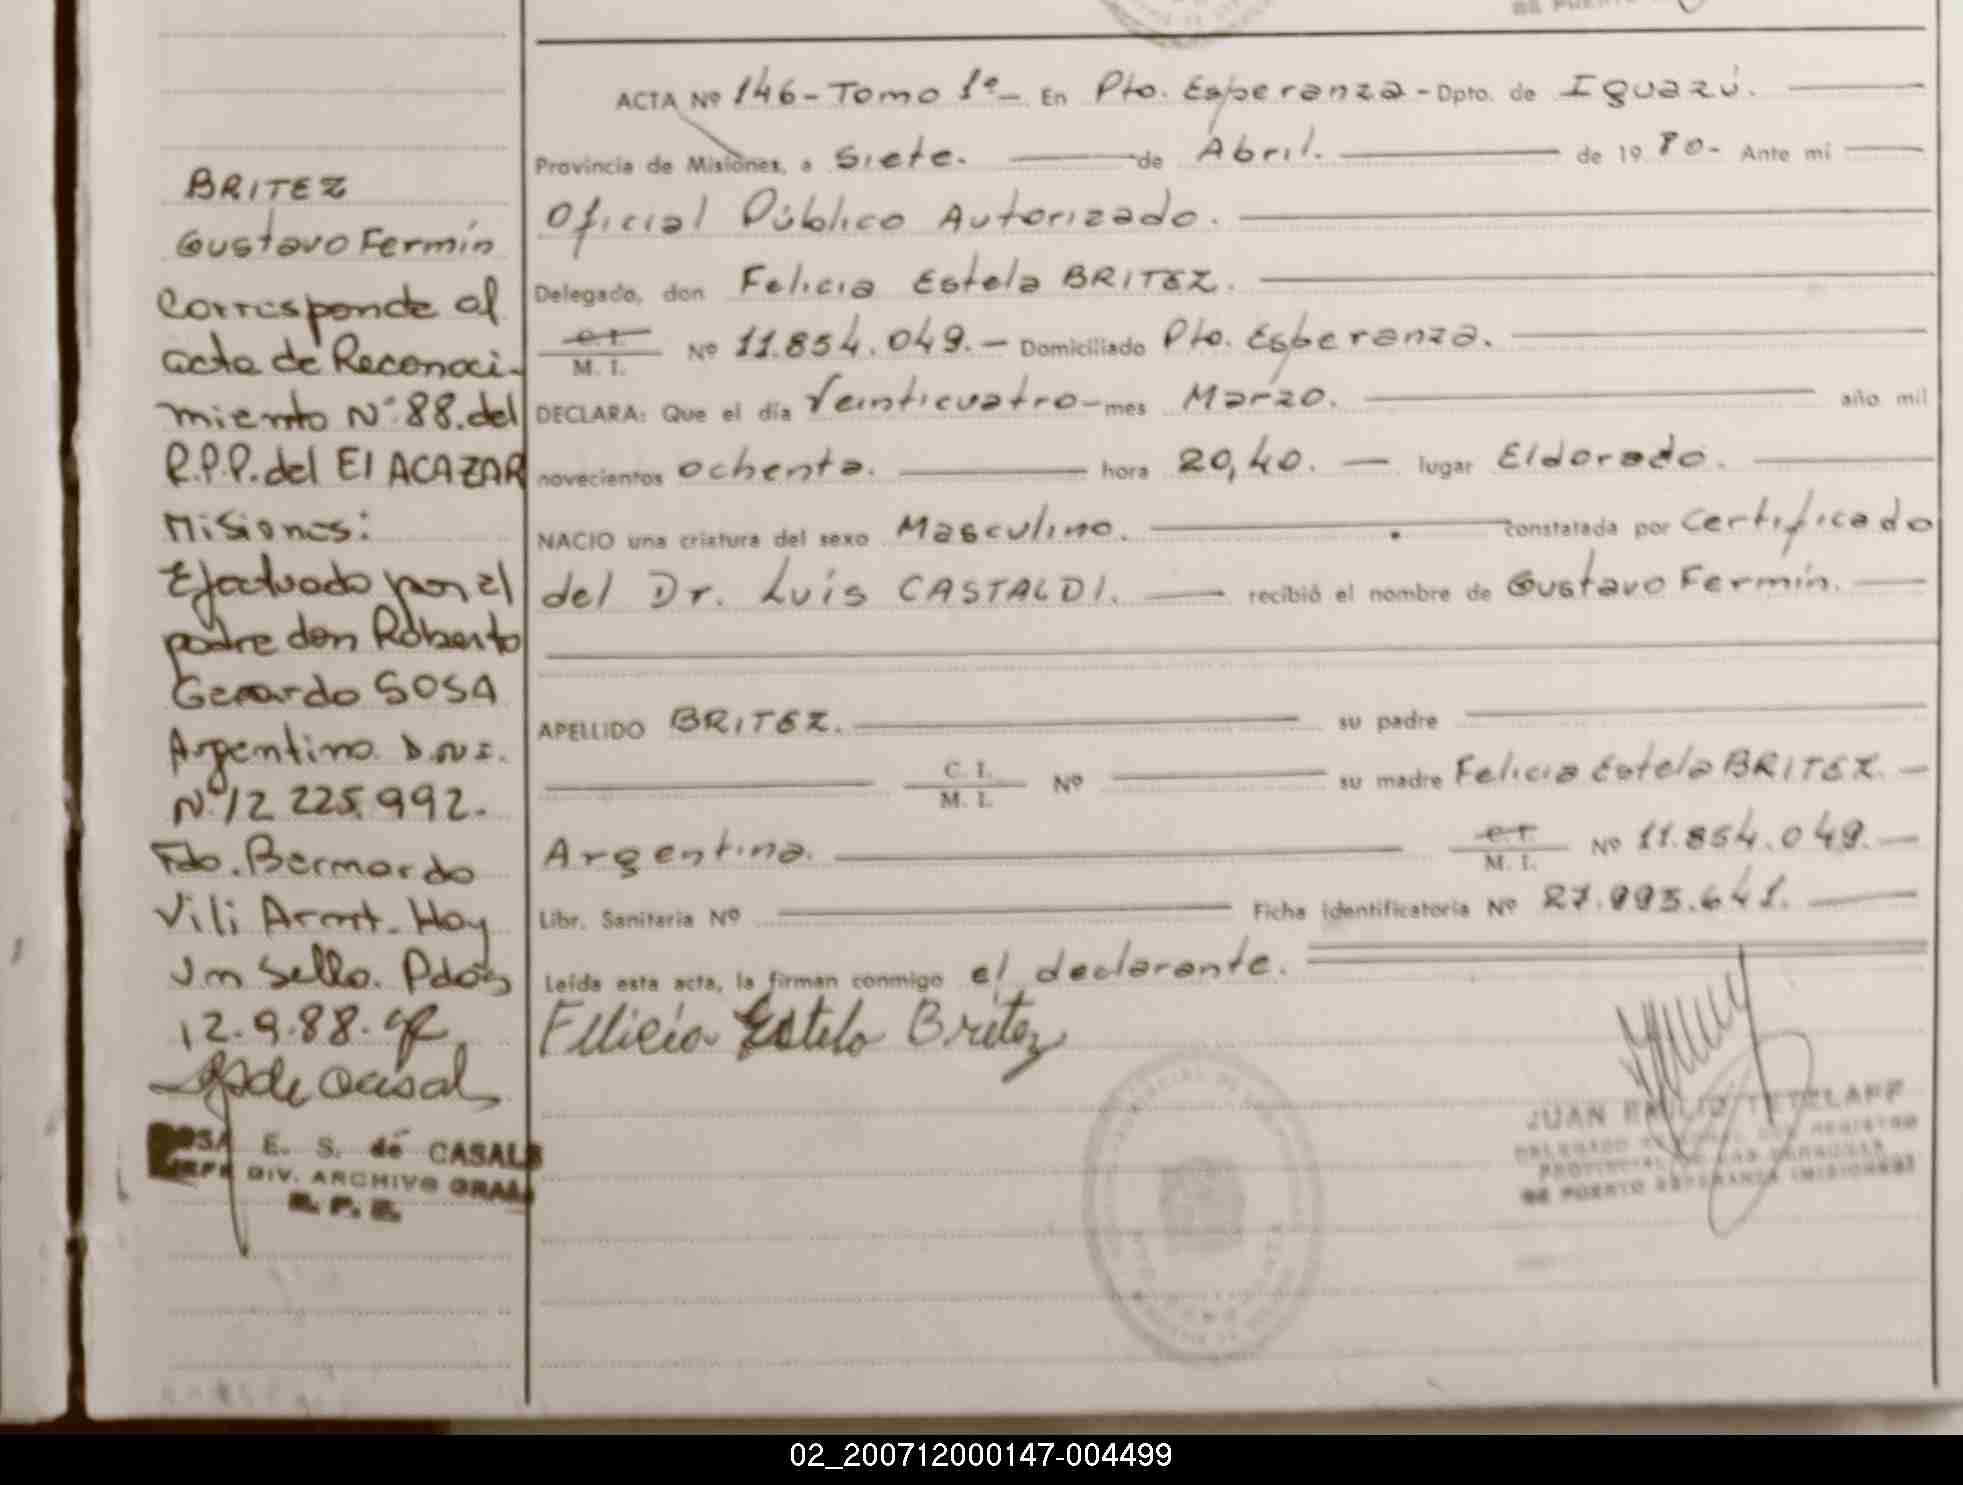 BRITEZ
Gustavo Fermín
Corresponde al
acta de Reconoci-
miento Nº 88. del
R.P.P. del El ACAZAR
Misiones:
Efectuado por el
padre don Roberto
Gerardo SOSA
Argentino. D.N.I.
Nº 12 225.992.-
Fdo. Bernardo
Vili Arnt. Hay
un sello. Pdas
12.9.88.
E. S. de CASALS
JEFE DIV. ARCHIVO GRAL.
R. P. P.
ACTA Nº 146 - Tomo 1º - En Pto. Esperanza - Dpto. de Iguazú.
Provincia de Misiones, a Siete. de Abril. de 19 80 - Ante mí
Oficial Público Autorizado.
Delegado, don Felicia Estela BRITEZ.
C. I.
M. I. Nº 11.854.049. - Domiciliado Pto. Esperanza.
DECLARA: Que el día Veinticuatro - mes Marzo. año mil
novecientos ochenta. hora 20,40. - lugar Eldorado.
NACIO una criatura del sexo Masculino. constatada por Certificado
del Dr. Luis CASTALDI. recibió el nombre de Gustavo Fermín.
APELLIDO BRITEZ. su padre
C. I.
M. I. Nº su madre Felicia Estela BRITEZ. -
Argentina. C. I.
M. I. Nº 11.854.049. -
Libr. Sanitaria Nº Ficha identificatoria Nº 27.993.641.
Leída esta acta, la firman conmigo el declarante.
Felicia Estela Britez
JUAN EMILIO TETZLAFF
DE PUERTO ESPERANZA (MISIONES)
02_200712000147-004499